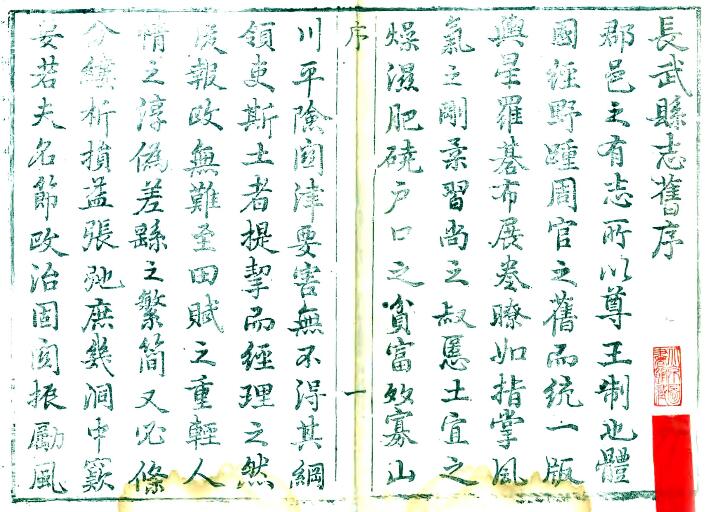 長武縣志舊序
郡邑之有志所以尊王制也體
國經野踵周官之舊而統一版
輿星羅棊布展卷瞭如指掌風
氣之剛柔習尚之淑慝土宜之
燥濕肥磽戶口之貧富多寡山
序
一
川平險関津要害無不得其綱
領吏斯土者提挈而經理之然
後報政無難至田賦之重輕人
情之淳偽差繇之繁簡又必條
分縷析損益張弛庶幾洞中窾
要若夫名節政治固関振勵風